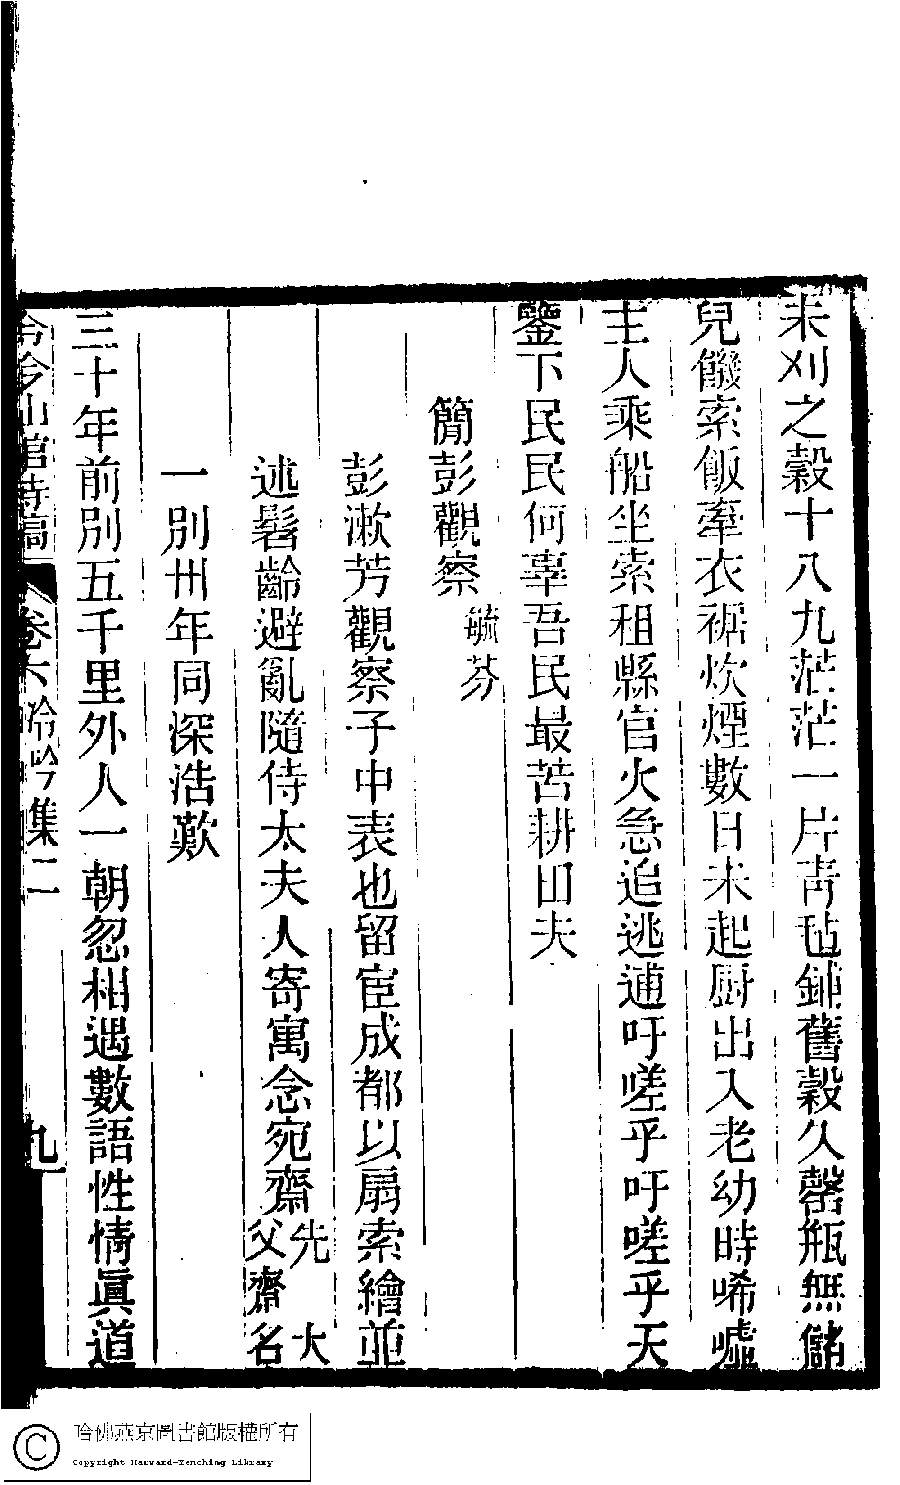 未刈之穀十八九茫茫一片靑毡鋪舊穀久罄瓶無儲
兒饑索飯牽衣裾炊煙數日未起厨出入老幼時唏噓
主人乘船坐索租縣官火急追逃逋吁嗟乎吁嗟乎天
鑒下民民何辜吾民最苦耕田夫
簡彭觀察毓芬
彭漱芳觀察子中表也留宦成都以扇索繪並
述髫齡避亂隨侍太夫人寄寓念宛齋先大
父齋名
一別卅年同深浩歎
三十年前別五千里外人一朝忽相遇數語性情眞道
今山館詩稿 卷六 冷吟集二 九
哈佛燕京圖書館版權所有
Copyright Harvard-Yenching Library